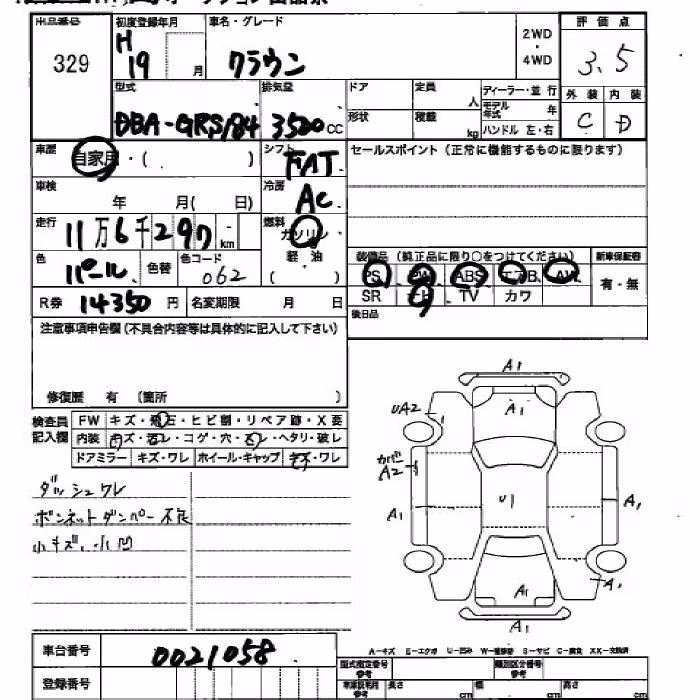 出品番号 初度登録年月 車名・グレード 評価点
329 H 19 月 クラウン 2WD・4WD 3.5
型式 排気量 ドア 定員 人 ディーラー・並行 外装 内装
DBA-GRS184 3500cc 形状 積載 kg モデル年式 年 C D
ハンドル 左・右
車歴 自家用・( ) シフト FAT セールスポイント(正常に機能するものに限ります)
車検 年 月( 日) 冷房 AC
走行 11万6千297 km 燃料 ガソリン
軽・油
( )
色 パール 色替 色コード 062
装備品(純正品に限り○をつけてください) 新車保証書
PS PW ABS エアB AW 有・無
SR ナビ TV カワ
R券 14350円 名変期限 月 日 後日品
注意事項申告欄(不具合内容等は具体的に記入して下さい)
修復歴 有 (箇所 )
検査員記入欄 FW キズ・飛石・ヒビ割・リペア跡・X要
内装 キズ・ヨゴレ・コゲ・穴・ズレ・ヘタリ・破レ
ドアミラー キズ・ワレ ホイール・キャップ キズ・ワレ
ダッシュワレ
ボンネットダンパー不良
小キズ、小凹
A1
UA2 A1
カバー
A2
U1
A1 A1
A1
A1
A1
A-キズ E-エクボ U-凹み W-補修跡 S-サビ C-腐食 XX-交換済
車台番号 0021058
登録番号 型式指定番号 参考 類別区分番号 参考
長さ cm 幅 cm 高さ cm